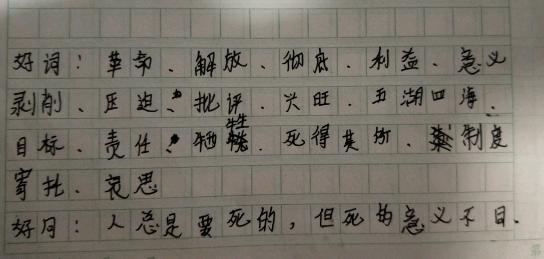 好词：革命、解放、彻底、利益、意义
剥削、压迫、批评、兴旺、五湖四海、
目标、责任、牺牲、死得其所、制度
寄托、哀思
好句：人总是要死的，但死的意义不同.